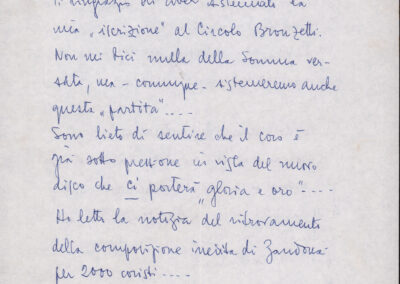 Ti ringrazio di aver sistemato la
mia „iscrizione" al Circolo Bronzetti.
Non mi dici nulla della somma ver-
sata, ma - comunque - sistemeremo anche
questa „partita"....
Sono lieto di sentire che il coro è
già sotto pressione in vista del nuovo
disco che ci porterà „gloria e oro"....
Ho letto la notizia del ritrovamento
della composizione inedita di Zandonai
per 2000 coristi....